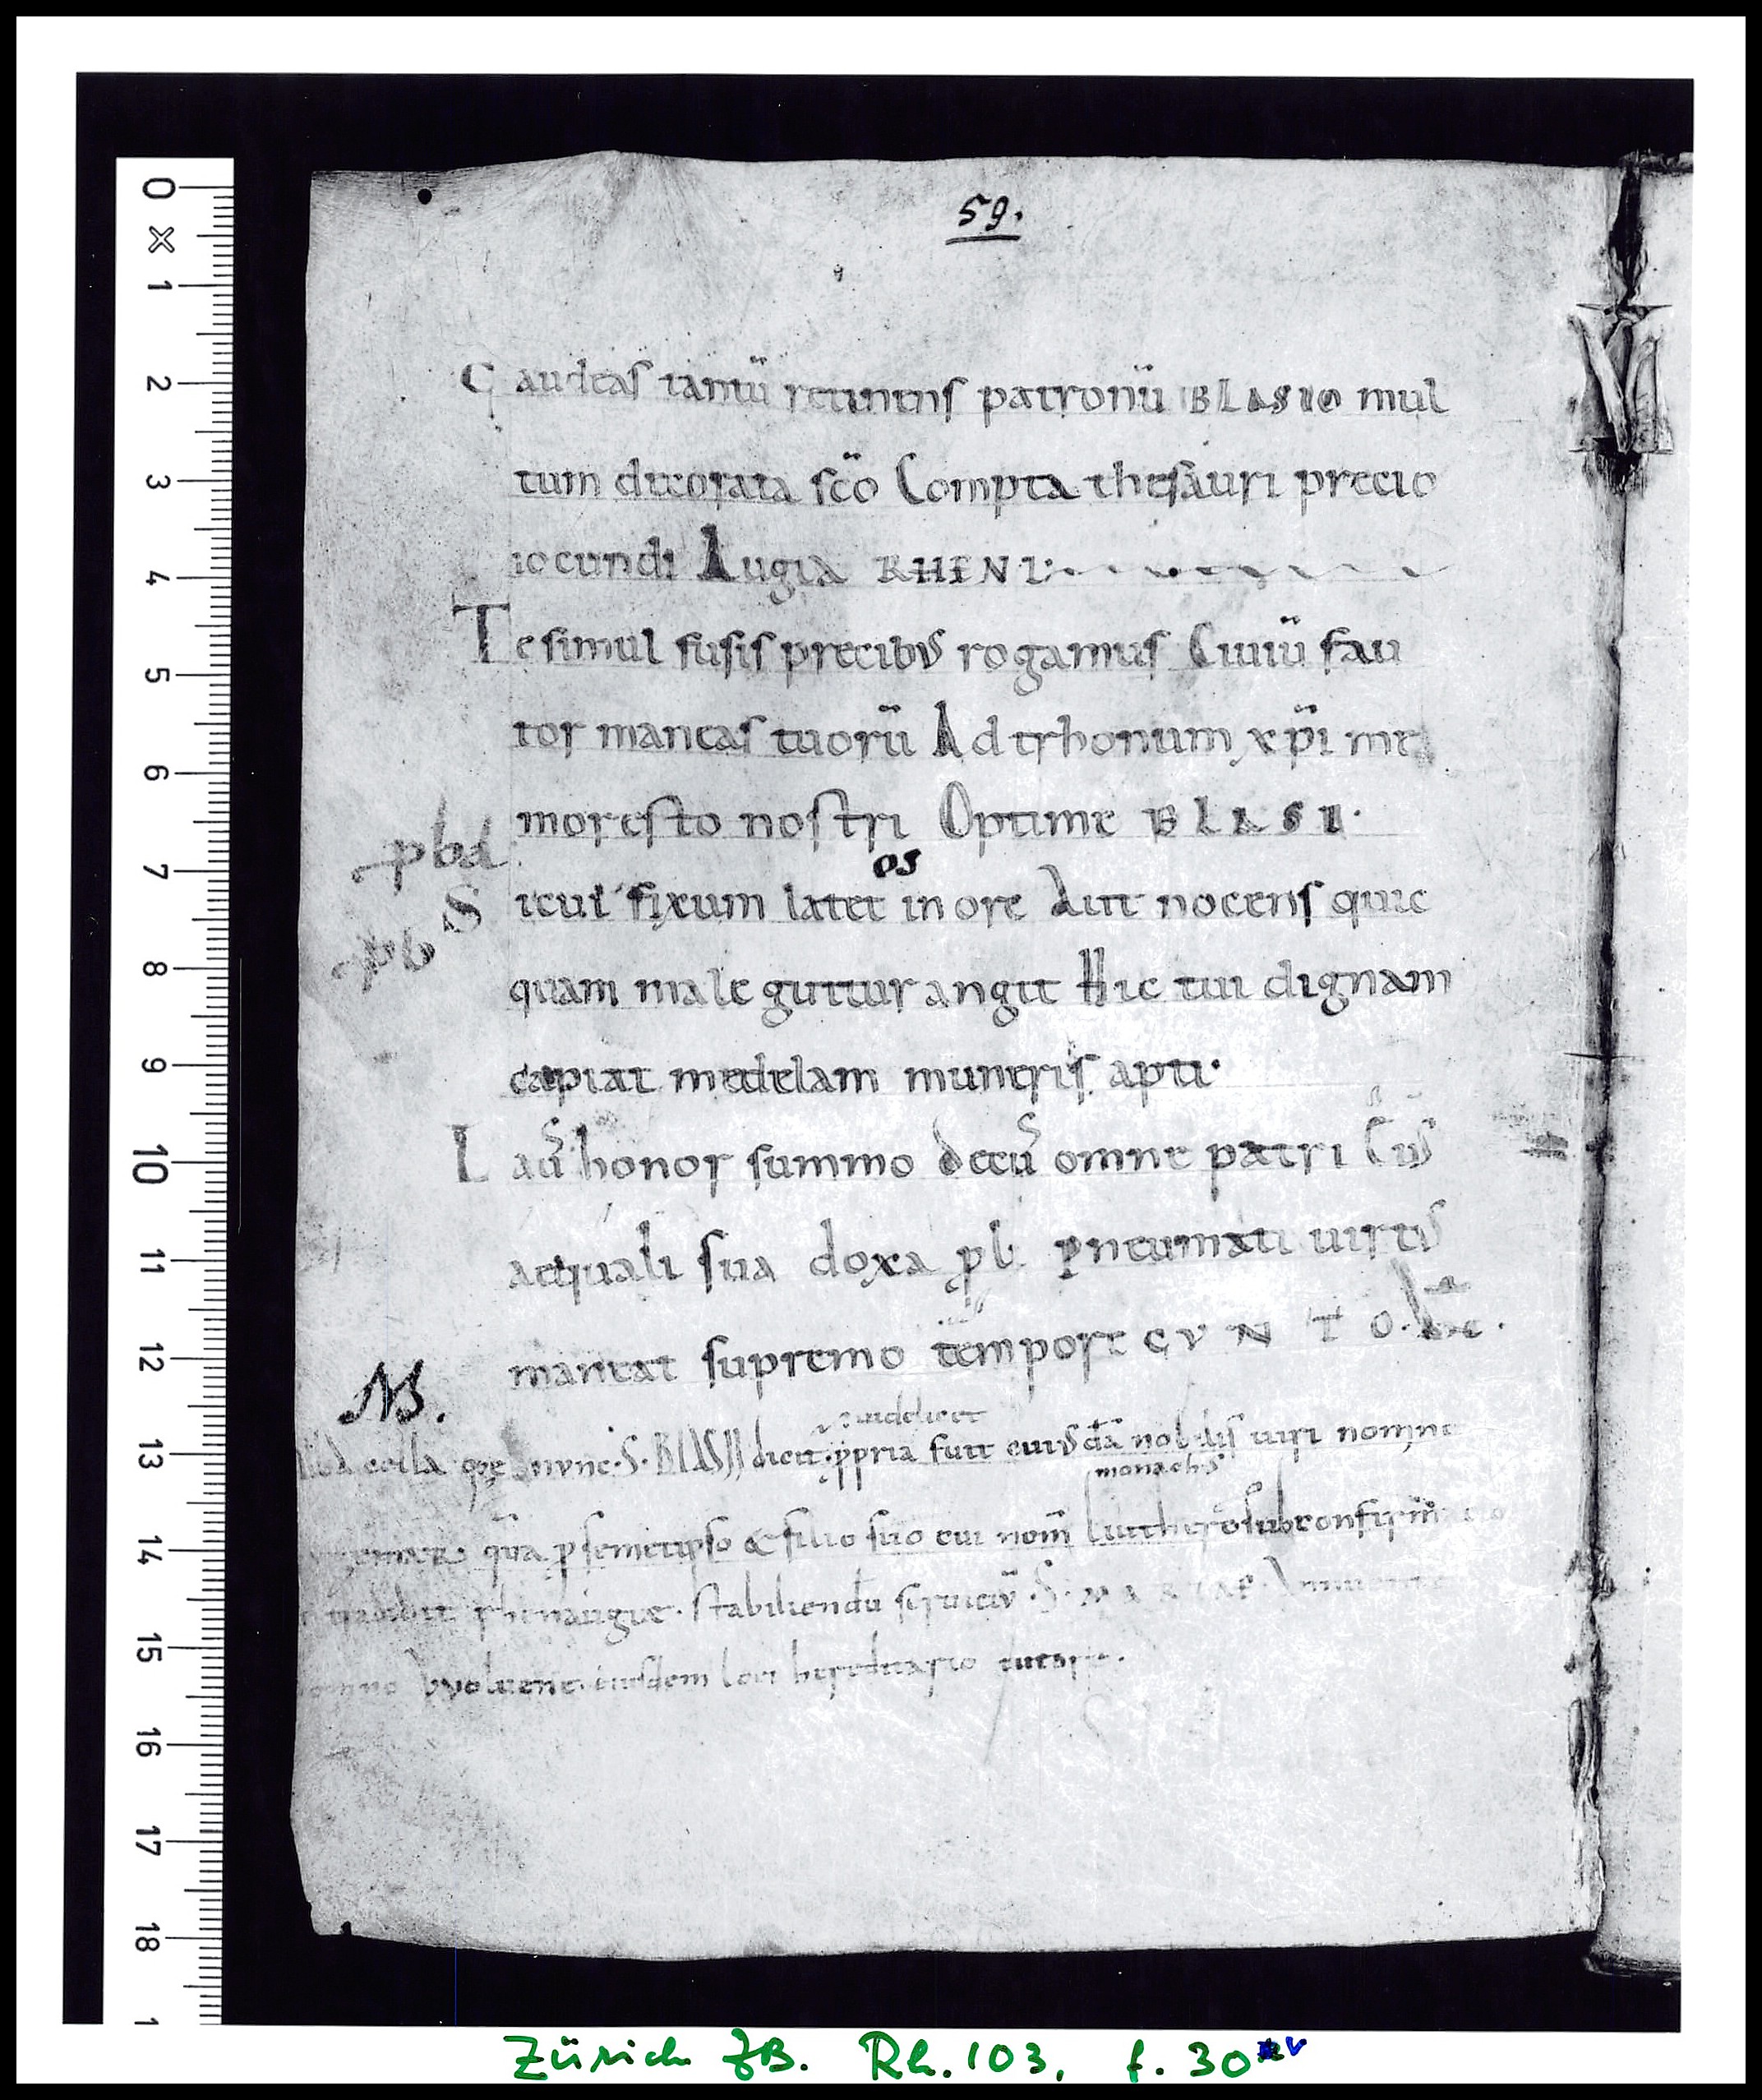 59.
Gaudeas tantū retinens patronū BLASIO mul
tum decorata sc̄o Compta thesauri precio
iocundi Augia RHENI:
Te simul fusis precibus rogamus Ciuiū fau
tor maneas tuorū Ad trhonum xp̄i me
mor esto nostri Optime BLASI.
pbd
os
Sicut fixum latet in ore Aut nocens quic
pb
quam male guttur angit Hic tui dignam
capiat medelam muneris apti.
Laus honor summo decus omne patri Cuius
aequali sua doxa pl. pneumati uirtus
maneat supremo tempore CVNTO.
NB.
uidelicet
cella quę nunc .S. BLASII dicit ppria fuit cuiusdā nobilis uiri nomine
monachus
quā p semetipso & filio suo cui nom̄ Liuthero sub confirm
tradidit rhenaugiae. stabiliendū seruiciū .S. MARIAE.
Vvoluene eiusdem loci hereditario
Zürich ZB. Rh. 103, f. 30v
0 x 1 2 3 4 5 6 7 8 9 10 11 12 13 14 15 16 17 18 1